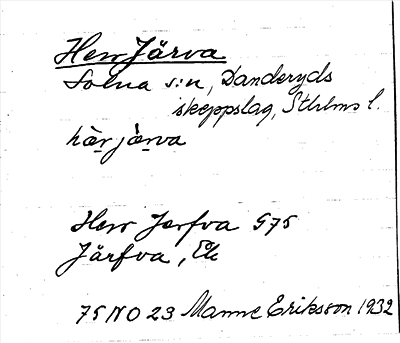 Herr Järva
Solna s:n, Danderyds
skeppslag, Sthlms l.
hèr jèrva
Herr Jerfva G75
Järfva, Ek
75 NO 23 Manne Eriksson 1932